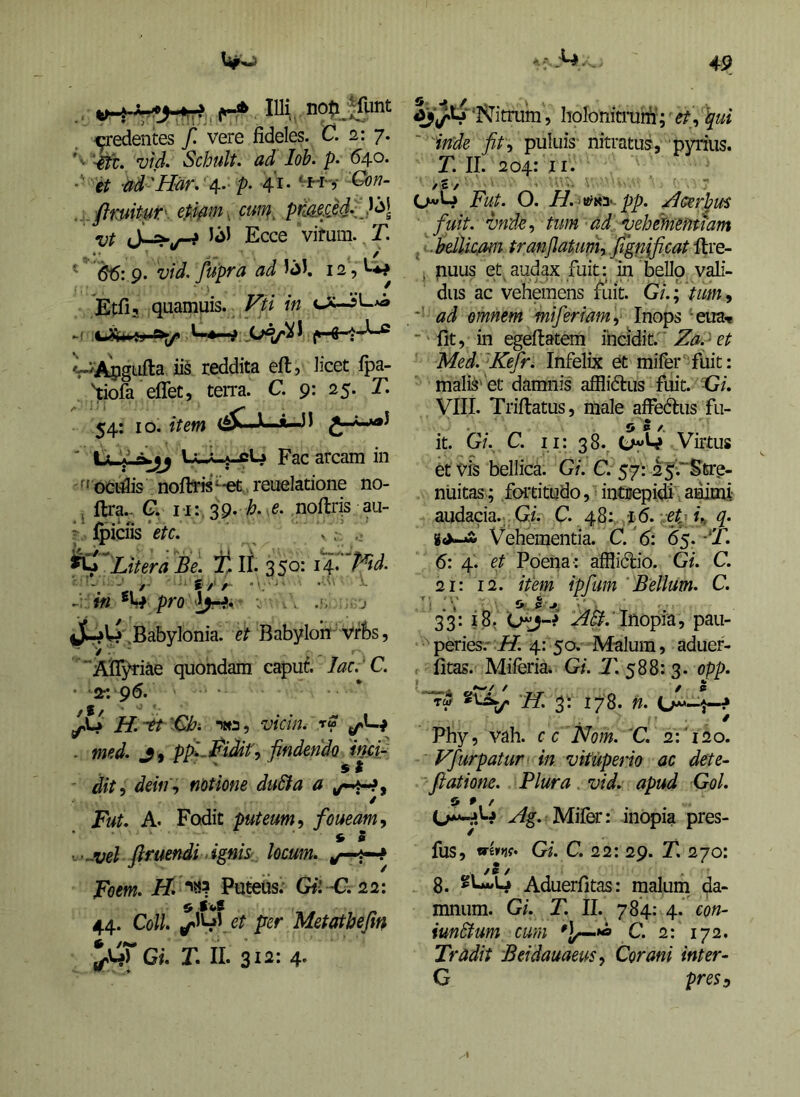 49
Illi non sunt
credentes f. vere fideles. C. 2: 7.
etc. vid. Schult. ad Iob. p. 640.
et ad Har. 4. p. 41. Con-
struitur etiam cum praeced. اذا
vt اذا Ecce virum. T.
66: 9. vid. supra ad اذا. 12,
Etsi, quamuis. Vti in
Angusta iis reddita est, licet spa-
tiosa esset, terra. C. 9: 25. T.
54: 10. item
Fac arcam in
oculis nostris et reuelatione no-
stra. C. 11: 39. h. e. nostris au-
spiciis etc.
Litera Be. T. II. 350: 14. Vid.
in pro
بابل Babylonia. et Babylon vrbs,
Assyriae quondam caput. Iac. C.
2: 96.
H. et Ch. באר, vicin. τῷ
med. و, pp. Fidit, findendo inci-
dit, dein, notione ducta a
Fut. A. Fodit puteum, foueam,
vel struendi ignis locum.
Foem. H. באר Puteus. Gi. C. 22:
44. Coll. et per Metathesin
Gi. T. II. 312: 4.
Nitrum, holonitrum; et, qui
inde fit, puluis nitratus, pyrius.
T. II. 204: 11.
Fut. O. H. באש pp. Acerbus
fuit. vnde, tum ad vehementiam
bellicam translatum, significat stre-
nuus et audax fuit: in bello vali-
dus ac vehemens fuit. Gi.; tum,
ad omnem miseriam, Inops eua-
sit, in egestatem incidit. Za. et
Med. Kesr. Infelix et miser fuit:
malis et damnis afflictus fuit. Gi.
VIII. Tristatus, male affectus fu-
it. Gi. C. 11: 38. بأس Virtus
et vis bellica. Gi. C. 57: 25. Stre-
nuitas; fortitudo, intrepidi animi
audacia. Gi. C. 48: 16. et i. q.
شدة Vehementia. C. 6: 65. T.
6: 4. et Poena: afflictio. Gi. C.
21: 12. item ipsum Bellum. C.
33: 18. Act. Inopia, pau-
peries. H. 4: 50. Malum, aduer-
sitas. Miseria. Gi. T. 588: 3. opp.
τῷ H. 3: 178. n.
Phy, vah. c c Nom. C. 2: 120.
Vsurpatur in vituperio ac dete-
statione. Plura vid. apud Gol.
Ag. Miser: inopia pres-
sus, Gi. C. 22: 29. T. 270:
8. Aduersitas: malum da-
mnum. Gi. T. II. 784: 4. con-
iunctum cum C. 2: 172.
Tradit Beidauaeus, Corani inter-
G pres,